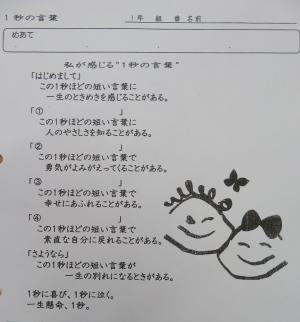 1秒の言葉　　　1年　組　番 名前
めあて
私が感じる"1秒の言葉"
「はじめまして」
この1秒ほどの短い言葉に
一生のときめきを感じることがある。
「①　　　　　」
この1秒ほどの短い言葉に
人のやさしさを知ることがある。
「②　　　　　」
この1秒ほどの短い言葉で
勇気がよみがえってくることがある。
「③　　　　　」
この1秒ほどの短い言葉で
幸せにあふれることがある。
「④　　　　　」
この1秒ほどの短い言葉で
素直な自分に戻れることがある。
「さようなら」
この1秒ほどの短い言葉が
一生の別れになるときがある。
1秒に喜び、1秒に泣く。
一生懸命、1秒。